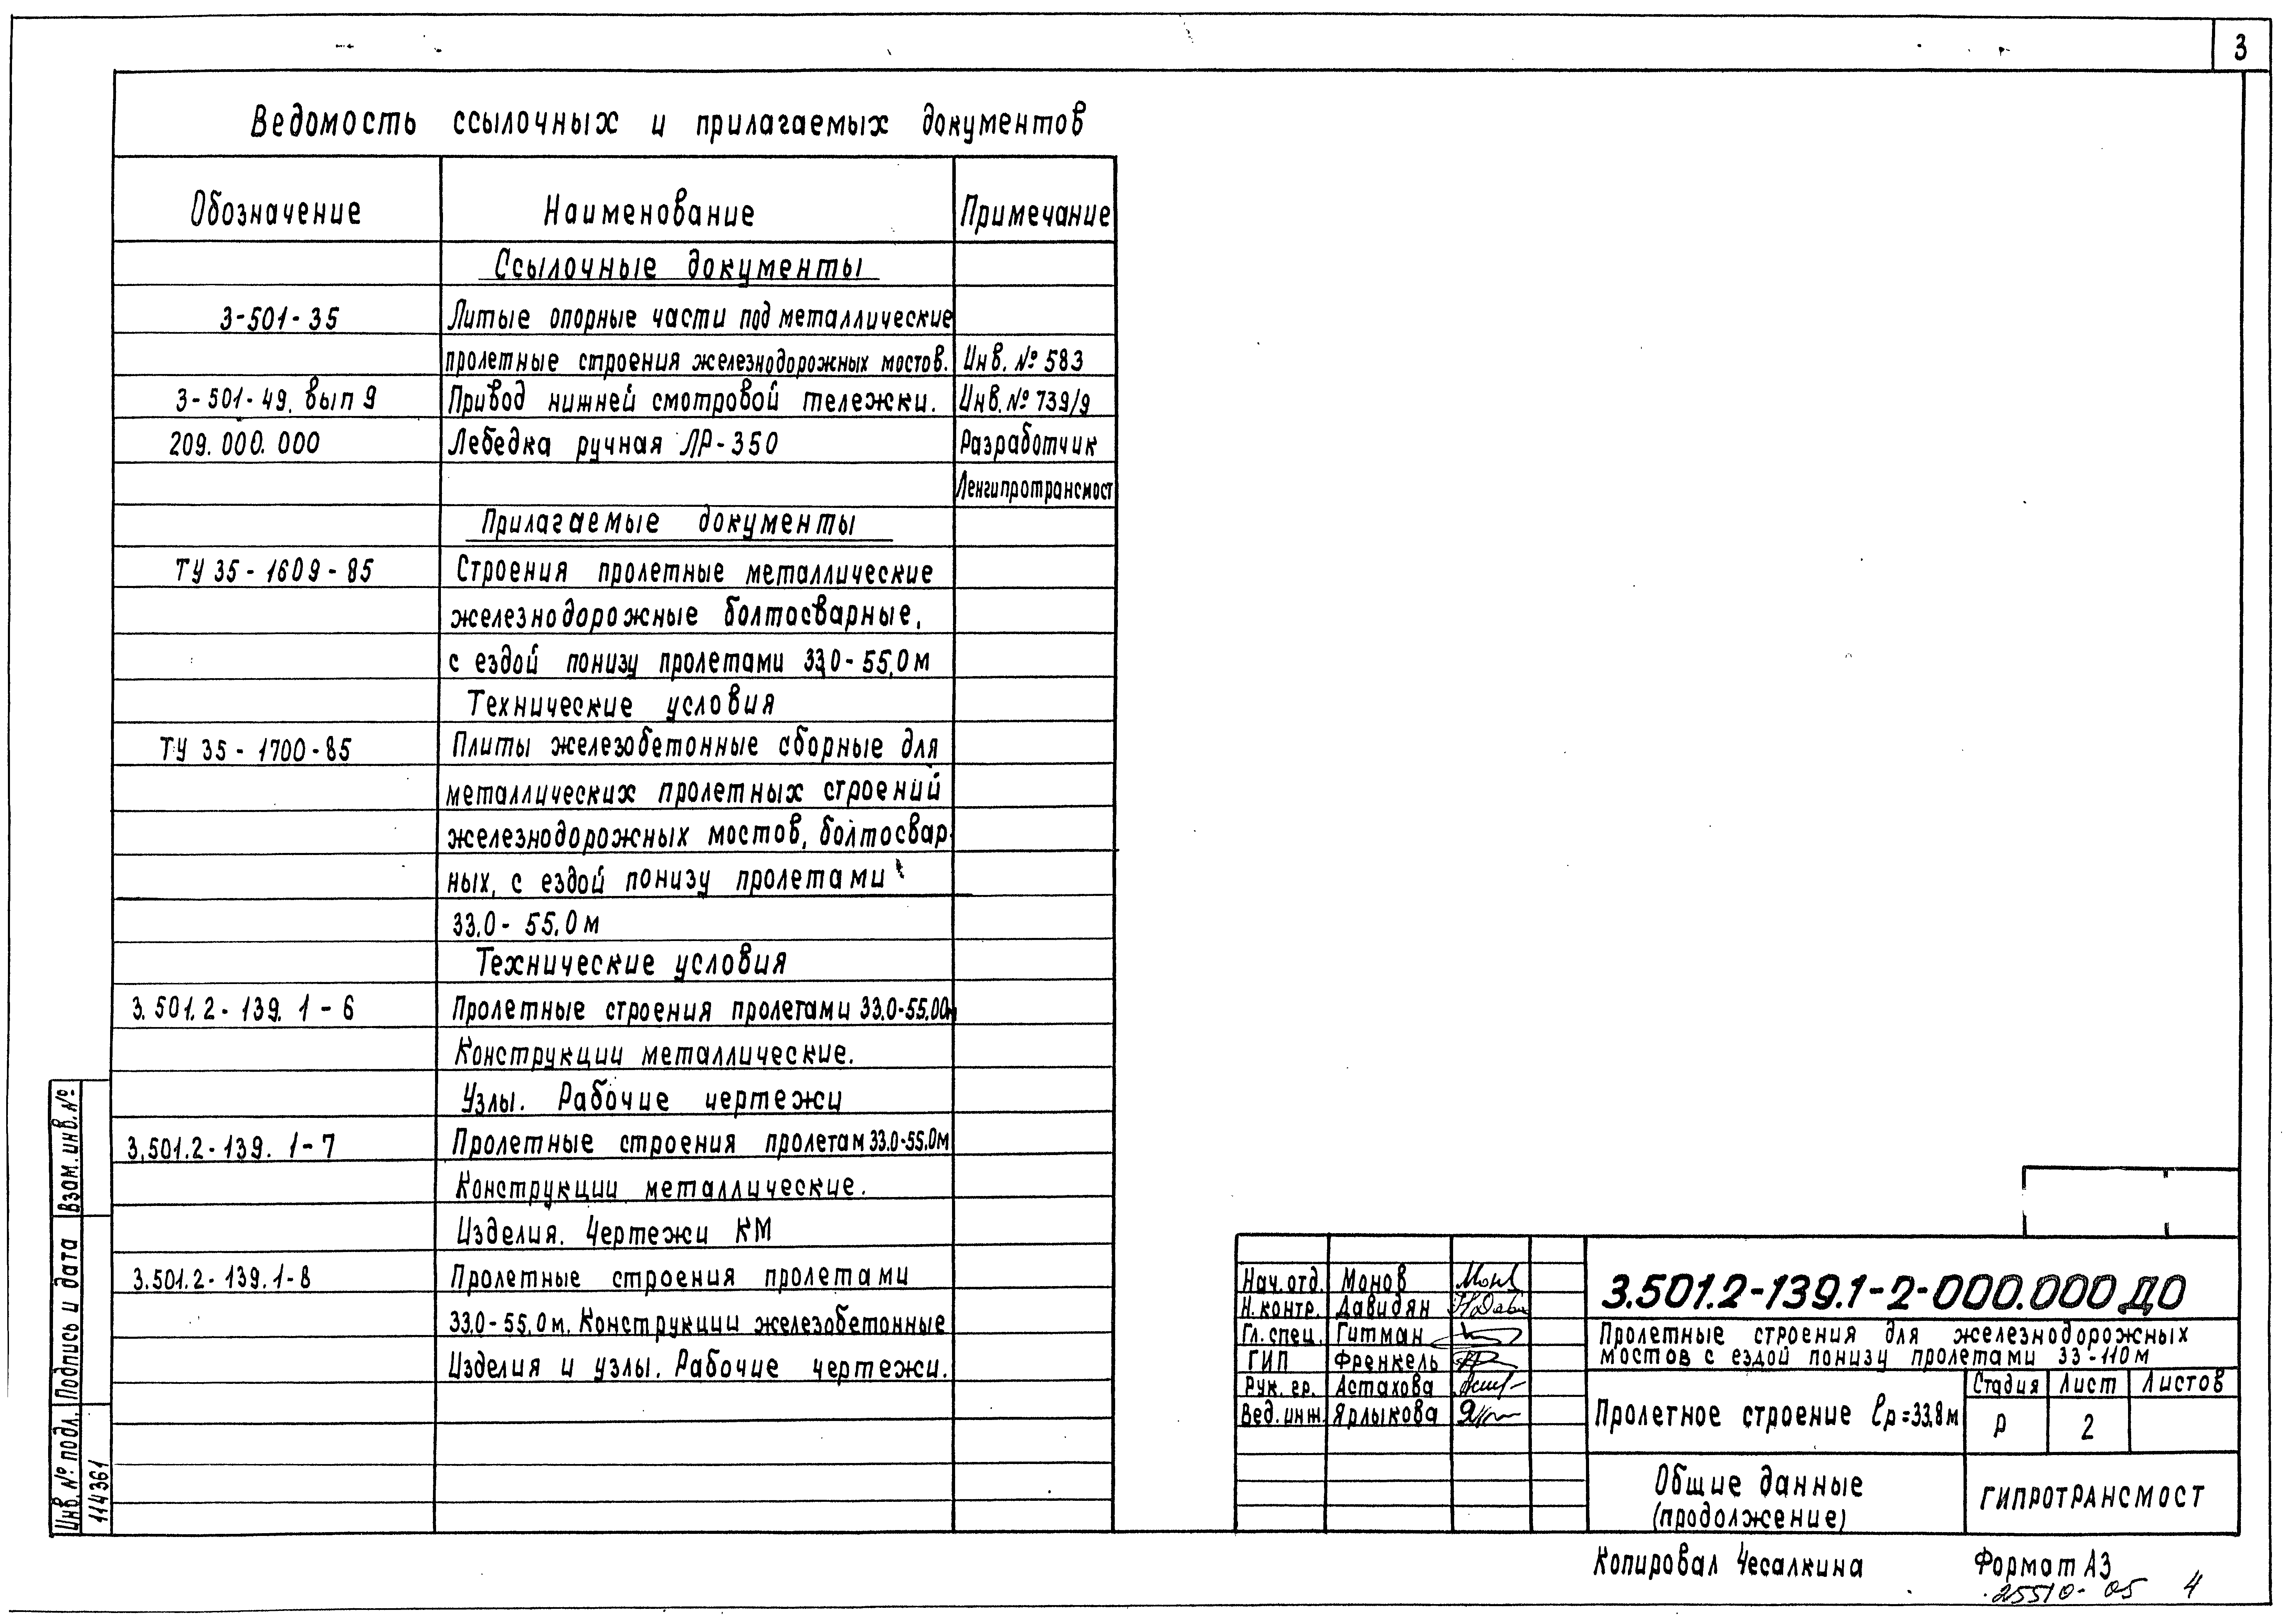 3
Ведомость ссылочных и прилагаемых документов
Обозначение Наименование Примечание
Ссылочные документы
3-501-35 Литые опорные части под металлические
пролетные строения железнодорожных мостов. Инв. № 583
3-501-49. вып 9 Привод нижней смотровой тележки. Инв. № 739/9
209. 000. 000 Лебедка ручная ЛР-350 Разработчик
Ленгипротрансмост
Прилагаемые документы
ТУ 35-1609-85 Строения пролетные металлические
железнодорожные болтосварные,
с ездой понизу пролетами 33,0-55,0м
Технические условия
ТУ 35-1700-85 Плиты железобетонные сборные для
металлических пролетных строений
железнодорожных мостов, болтосвар-
ных, с ездой понизу пролетами
33,0-55,0м
Технические условия
3.501.2-139.1-6 Пролетные строения пролетами 33,0-55,00м
Конструкции металлические.
Узлы. Рабочие чертежи
3.501.2-139.1-7 Пролетные строения пролетам 33.0-55,0м
Конструкции металлические.
Изделия. Чертежи КМ
3.501.2-139.1-8 Пролетные строения пролетами
33,0-55,0м. Конструкции железобетонные
Изделия и узлы. Рабочие чертежи.
Взам. инв. №
Подпись и дата
Инв. № подл. 114361
Нач. отд. Монов
Н. контр. Давидян
Гл. спец. Гитман
ГИП Френкель
Рук. гр. Астахова
Вед. инж. Ярлыкова
3.501.2-139.1-2-000.000 ДО
Пролетные строения для железнодорожных
мостов с ездой понизу пролетами 33-110м
Пролетное строение ℓр=33.8м
Стадия Лист Листов
Р 2
Общие данные
(продолжение)
ГИПРОТРАНСМОСТ
Копировал Чесалкина Формат А3
25510-05 4